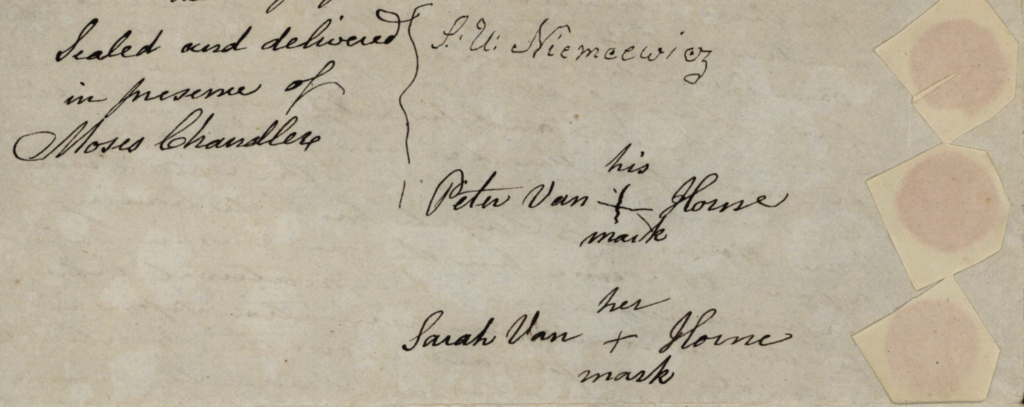 Sealed and delivered
in presense of
Moses Chandler
J: U: Niemcewicz
his
Peter Van + Horne
mark
her
Sarah Van + Horne
mark